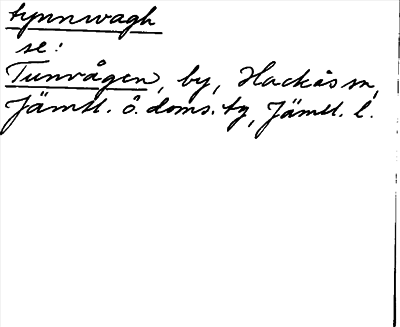 tynnwagh
se:
Tunvågen, by, Hackås sn,
Jämtl. ö. doms. tg, Jämtl. l.